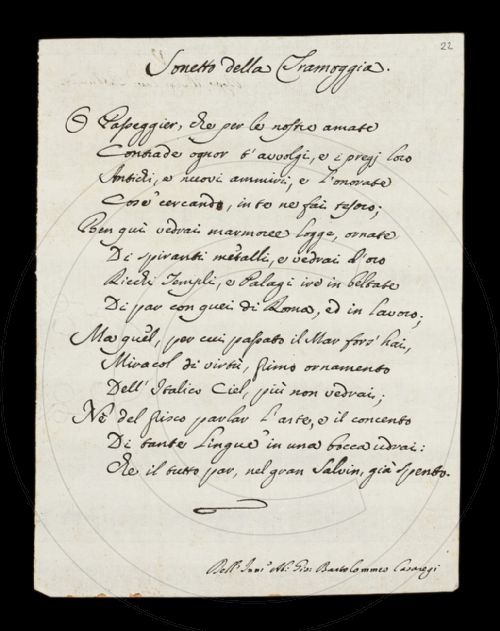 22
Sonetto della Tramoggia.
O Passeggier, che per le nostre amate
Contrade ognor t'avvolgi, e i pregj loro
Antichi, e nuovi ammiri, e l'onorate
Cose cercando, in te ne fai tesoro;
Ben quì vedrai marmoree logge, ornate
Di spiranti metalli, e vedrai d'oro
Ricchi Templi, e Palagi ire in beltate
Di par con quei di Roma, ed in lavoro;
Ma quel, per cui passato il Mar fors' hai,
Miracol di virtù, primo ornamento
Dell' Italico Ciel, più non vedrai;
Nè del prisco parlar l'arte, e il concento
Di tante lingue in una bocca udrai:
Che il tutto par, nel gran Salvin, già spento.
Dell' Abe Gio: Bartolommeo Casaregi